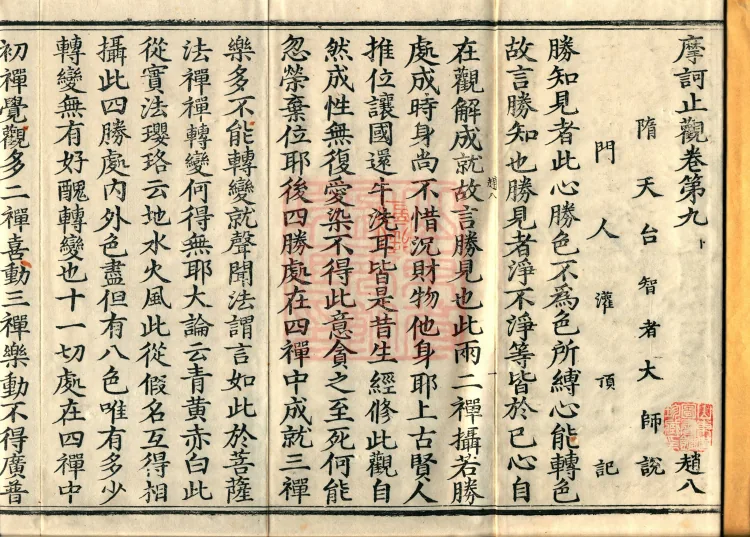 摩訶止觀卷第九 卜 趙八
隋天台智者大師說
門人灌頂記
勝知見者此心勝色不為色所縛心能轉色
故言勝知也勝見者淨不淨等皆於已心自
在觀解成就故言勝見也此兩二禪攝若勝
趙八
處成時身尚不惜況財物他身耶上古賢人
推位讓國還牛洗耳皆是昔生經修此觀自
然成性無復愛染不得此意貪之至死何能
忽榮棄位耶後四勝處在四禪中成就三禪
樂多不能轉變就聲聞法謂言如此於菩薩
法禪禪轉變何得無耶大論云青黃赤白此
從實法瓔珞云地水火風此從假名互得相
攝此四勝處內外色盡但有八色唯有多少
轉變無有好醜轉變也十一切處在四禪中
初禪覺觀多二禪喜動三禪樂動不得廣普